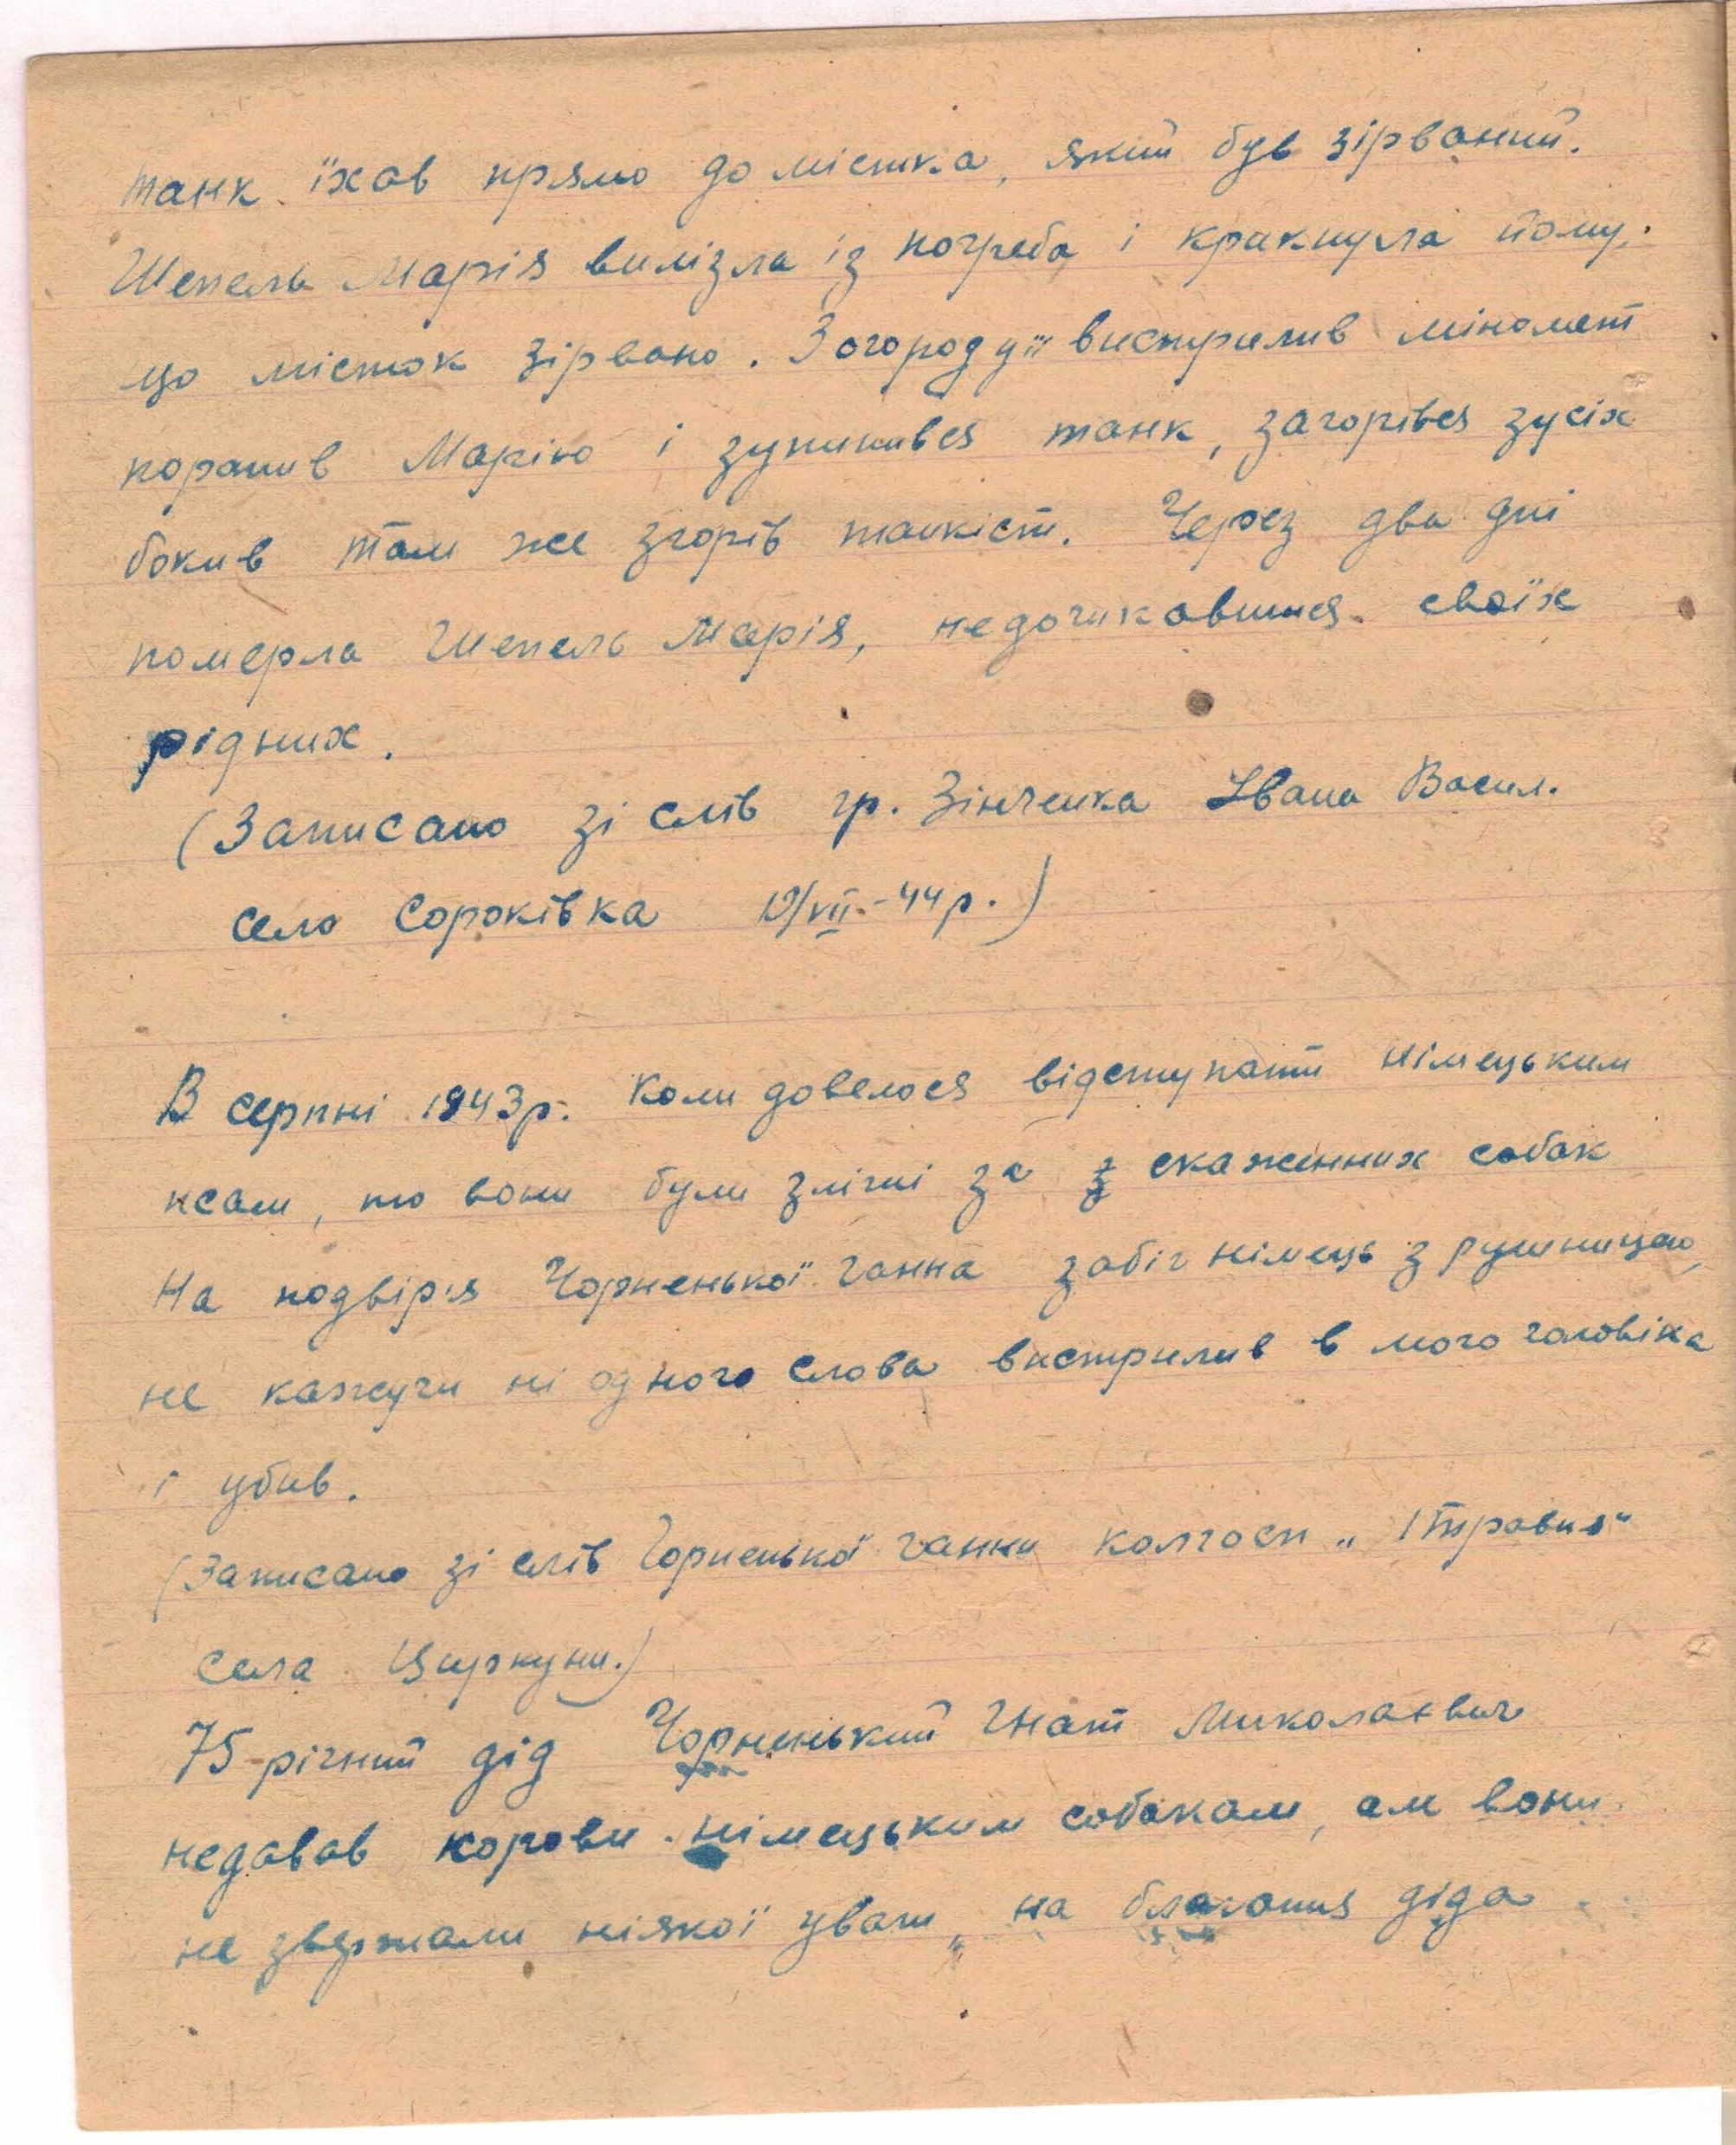 танк їхав прямо до містка, який був зірваний.
Шепель Марія вилізла із погреба і кракнула йому,
що місток зірвано. З огороду її вистрилив міномет
поранив Марію і зупинився танк, загорівся зусіх
боків там же згорів танкіст. Через два дні
померла Шепель Марія, недочикавшися своїх
рідних.
(Записано зі слів гр. Зінченка Івана Васил.
село Сороківка 19/VII.-44р.)
В серпні 1943р. коли довелося відступати німецьким
псам, то вони були зліші за з скаженних собак
На подвір'я Чорненької Ганна забіг німець з рушницею,
не кажучи ні одного слова вистрилив в мого чоловіка
і убив.
(Записано зі слів Чорненької Ганни колгосп „1 травня“
села Циркуни.)
75-річний дід Чорненький Гнат Миколаєвич
недавав корови німецьким собакам, але вони
не звертали ніякої уваги на благання діда